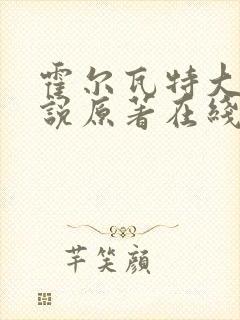 霍尔瓦特大
説原著在綫
芊笑顔